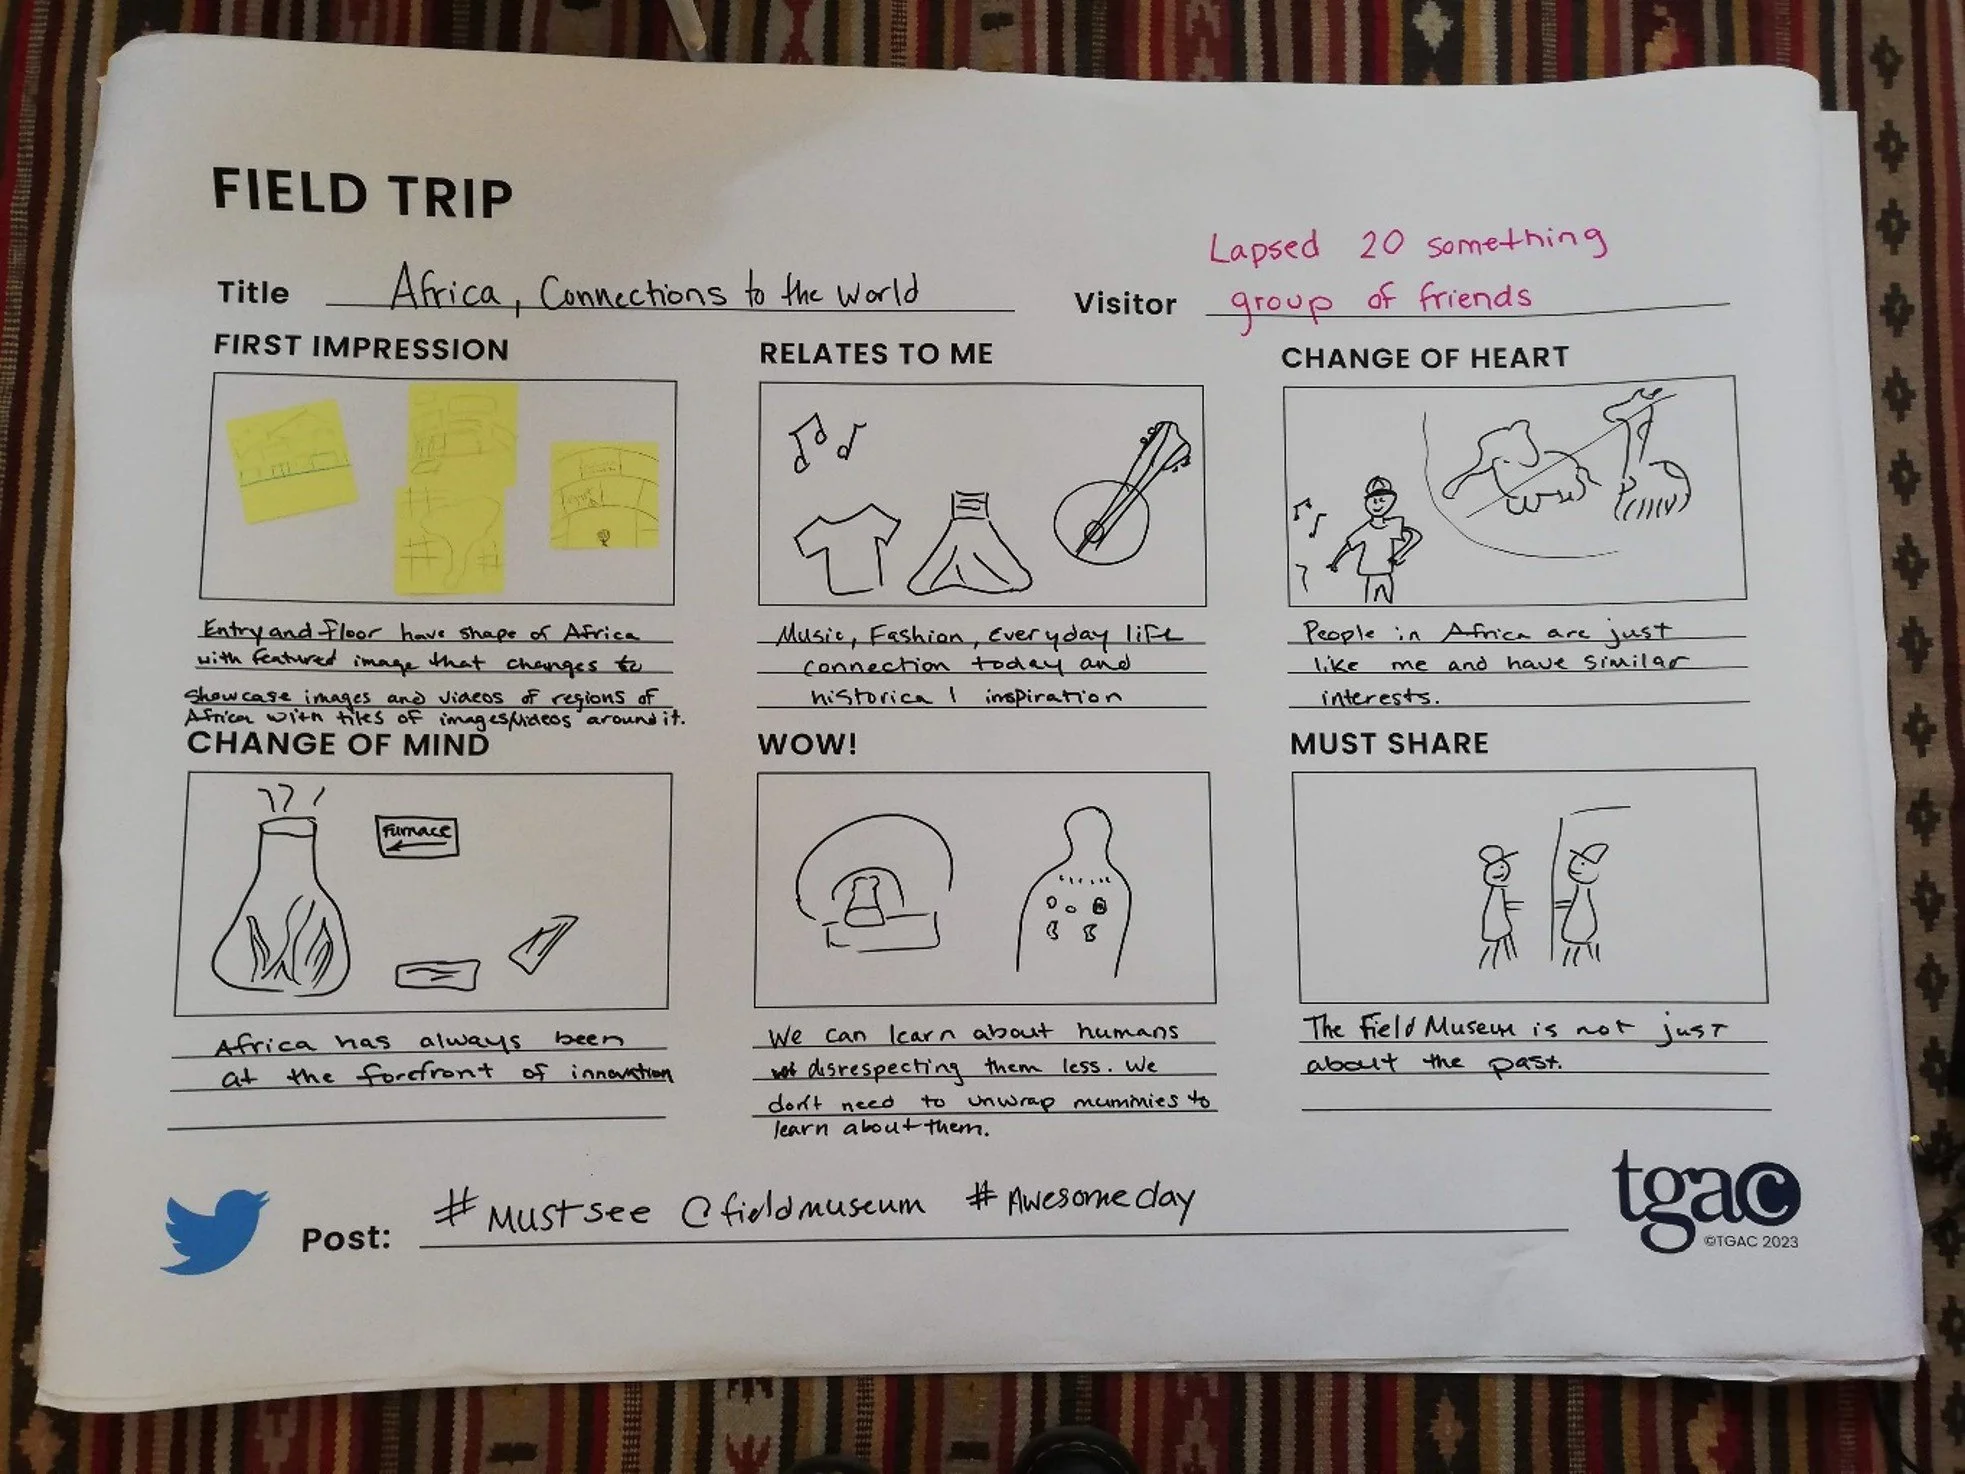 FIELD TRIP
Title Africa, Connections to the World
Visitor Lapsed 20 something
group of friends
FIRST IMPRESSION
Entry and floor have shape of Africa
with featured image that changes to
showcase images and videos of regions of
Africa with tiles of images/videos around it.
RELATES TO ME
Music, Fashion, Everyday life
connection today and
historical inspiration
CHANGE OF HEART
People in Africa are just
like me and have similar
interests.
CHANGE OF MIND
Furnace
Africa has always been
at the forefront of innovation
WOW!
We can learn about humans
disrespecting them less. We
don't need to unwrap mummies to
learn about them.
MUST SHARE
The Field Museum is not just
about the past.
Post: #Mustsee @fieldmuseum #Awesomeday
tgac
©TGAC 2023